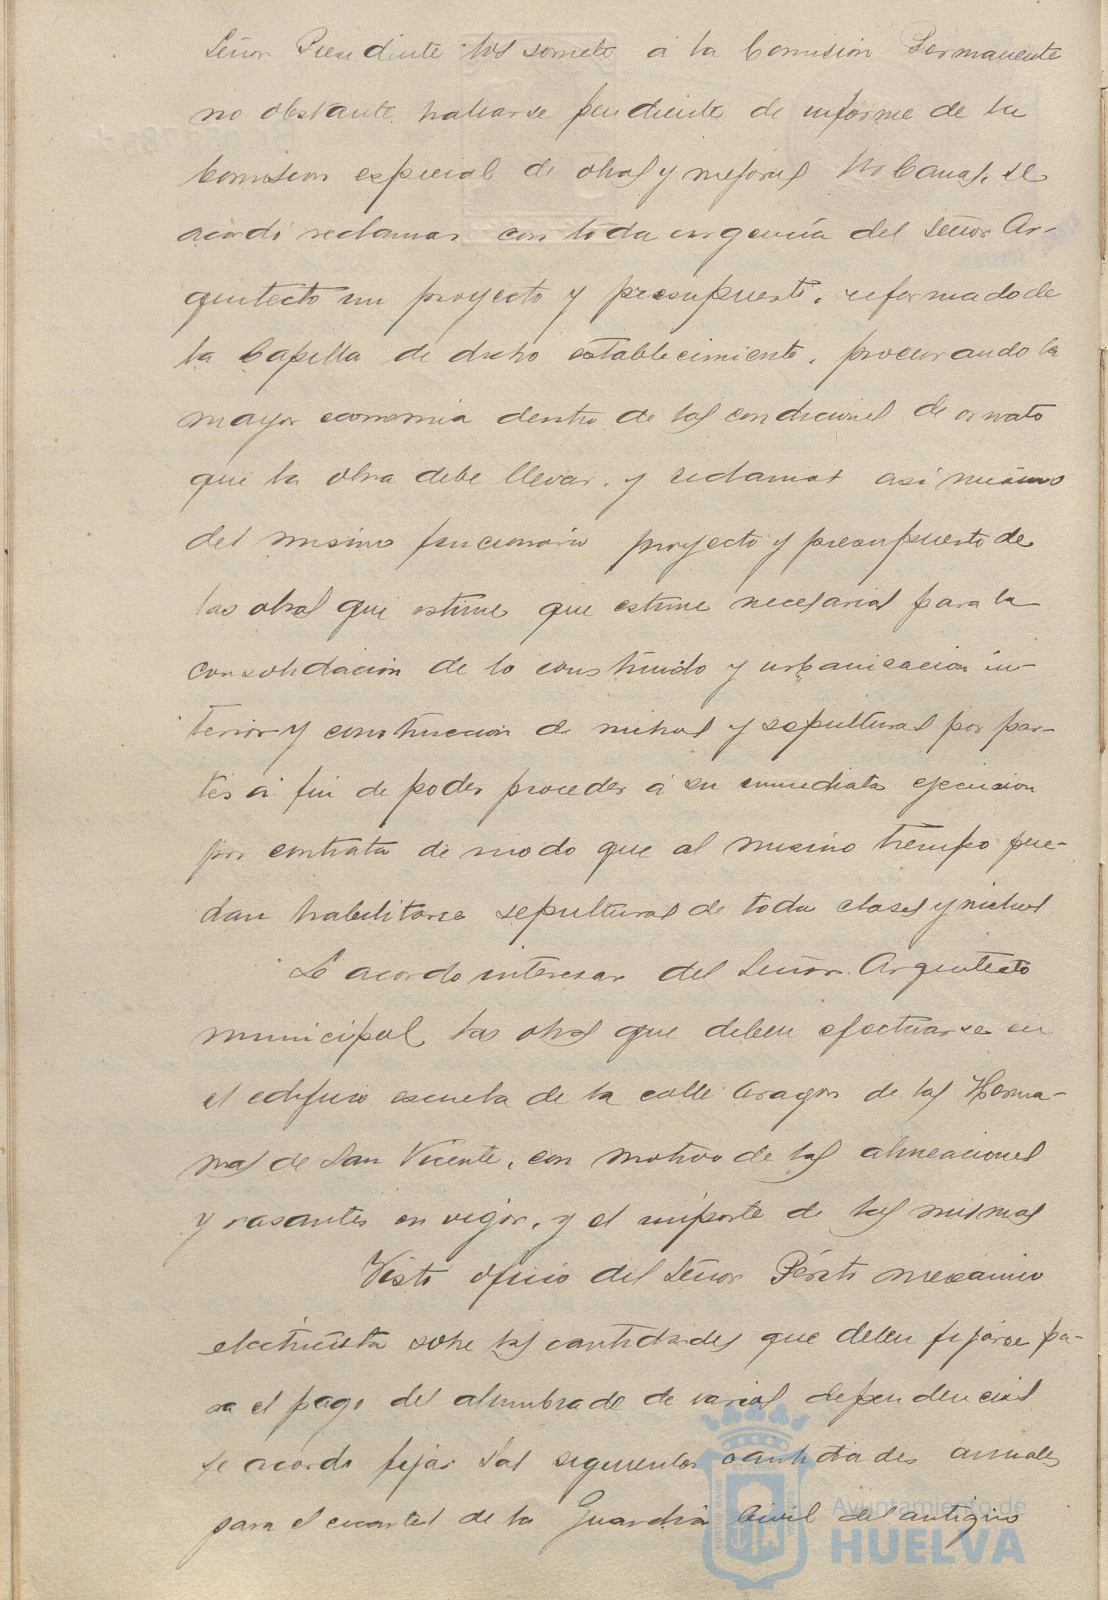 Señor Presidente los somete á la Comisión Permanente
no obstante hallarse pendiente de informe de la
Comision especial de obras y mejoras Urbanas, se
acordó reclamar con toda urgencia del Señor Ar-
quitecto un proyecto y presupuesto, reformado de
la Capilla de dicho establecimiento, procurando la
mayor economia dentro de las condiciones de ornato
que la obra debe llevar, y reclamar asi mismo
del mismo funcionario proyecto y presupuesto de
las obras que estime que estime necesarias para la
consolidacion de lo construido y urbanizacion in-
terior y construccion de nichos y sepulturas por par-
tes á fin de poder proceder á su inmediata ejecucion
por contrata de modo que al mismo tiempo pue-
dan habilitarse sepulturas de toda clases y nichos
Se acordo interesar del Señor Arquitecto
municipal las obras que deben efectuarse en
el edificio escuela de la calle Aragon de las Herma-
nas de San Vicente, con motivo de las alineaciones
y rasantes en vigor, y el importe de las mismas
Visto oficio del Señor Périto mecanico
electricista sobre las cantidades que deben fijarse pa-
ra el pago del alumbrado de varias dependencias
se acordo fijar las siguientes cantidades anuales
para el cuartel de la Guardia Civil del antiguo
Ayuntamiento de
HUELVA